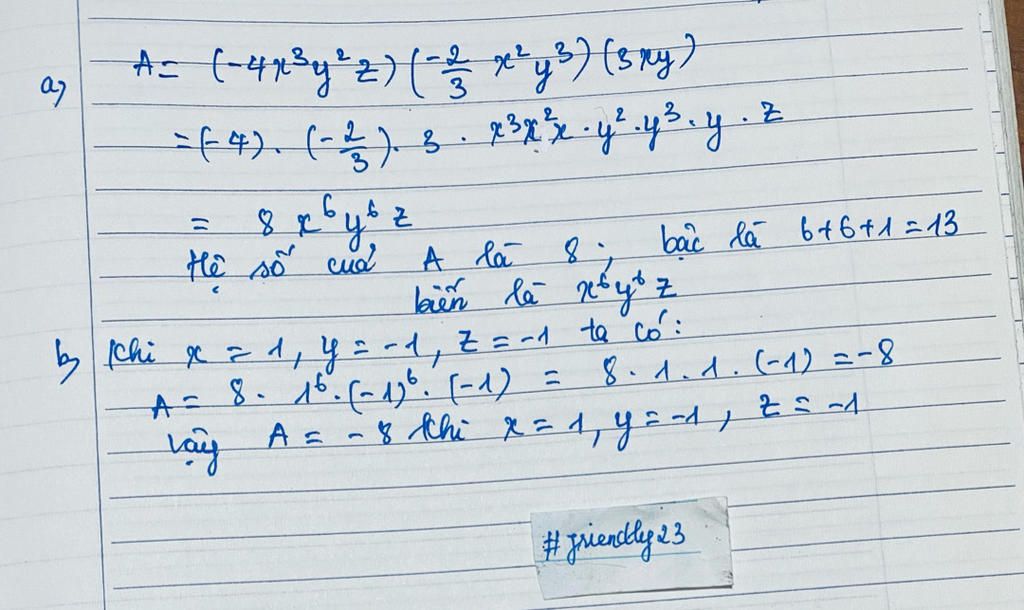 a) A = (-4x³y²z)(-2/3 x²y³)(3xy)
= (-4) . (-2/3) . 3 . x³x²x . y² . y³ . y . z
= 8 x⁶y⁶z
Hệ số của A là 8 ; bậc là 6+6+1=13
biến là x⁶y⁶z
b) Khi x = 1, y = -1, z = -1 ta có:
A = 8 . 1⁶ . (-1)⁶ . (-1) = 8 . 1 . 1 . (-1) = -8
Vậy A = -8 khi x = 1, y = -1, z = -1
#friendly23